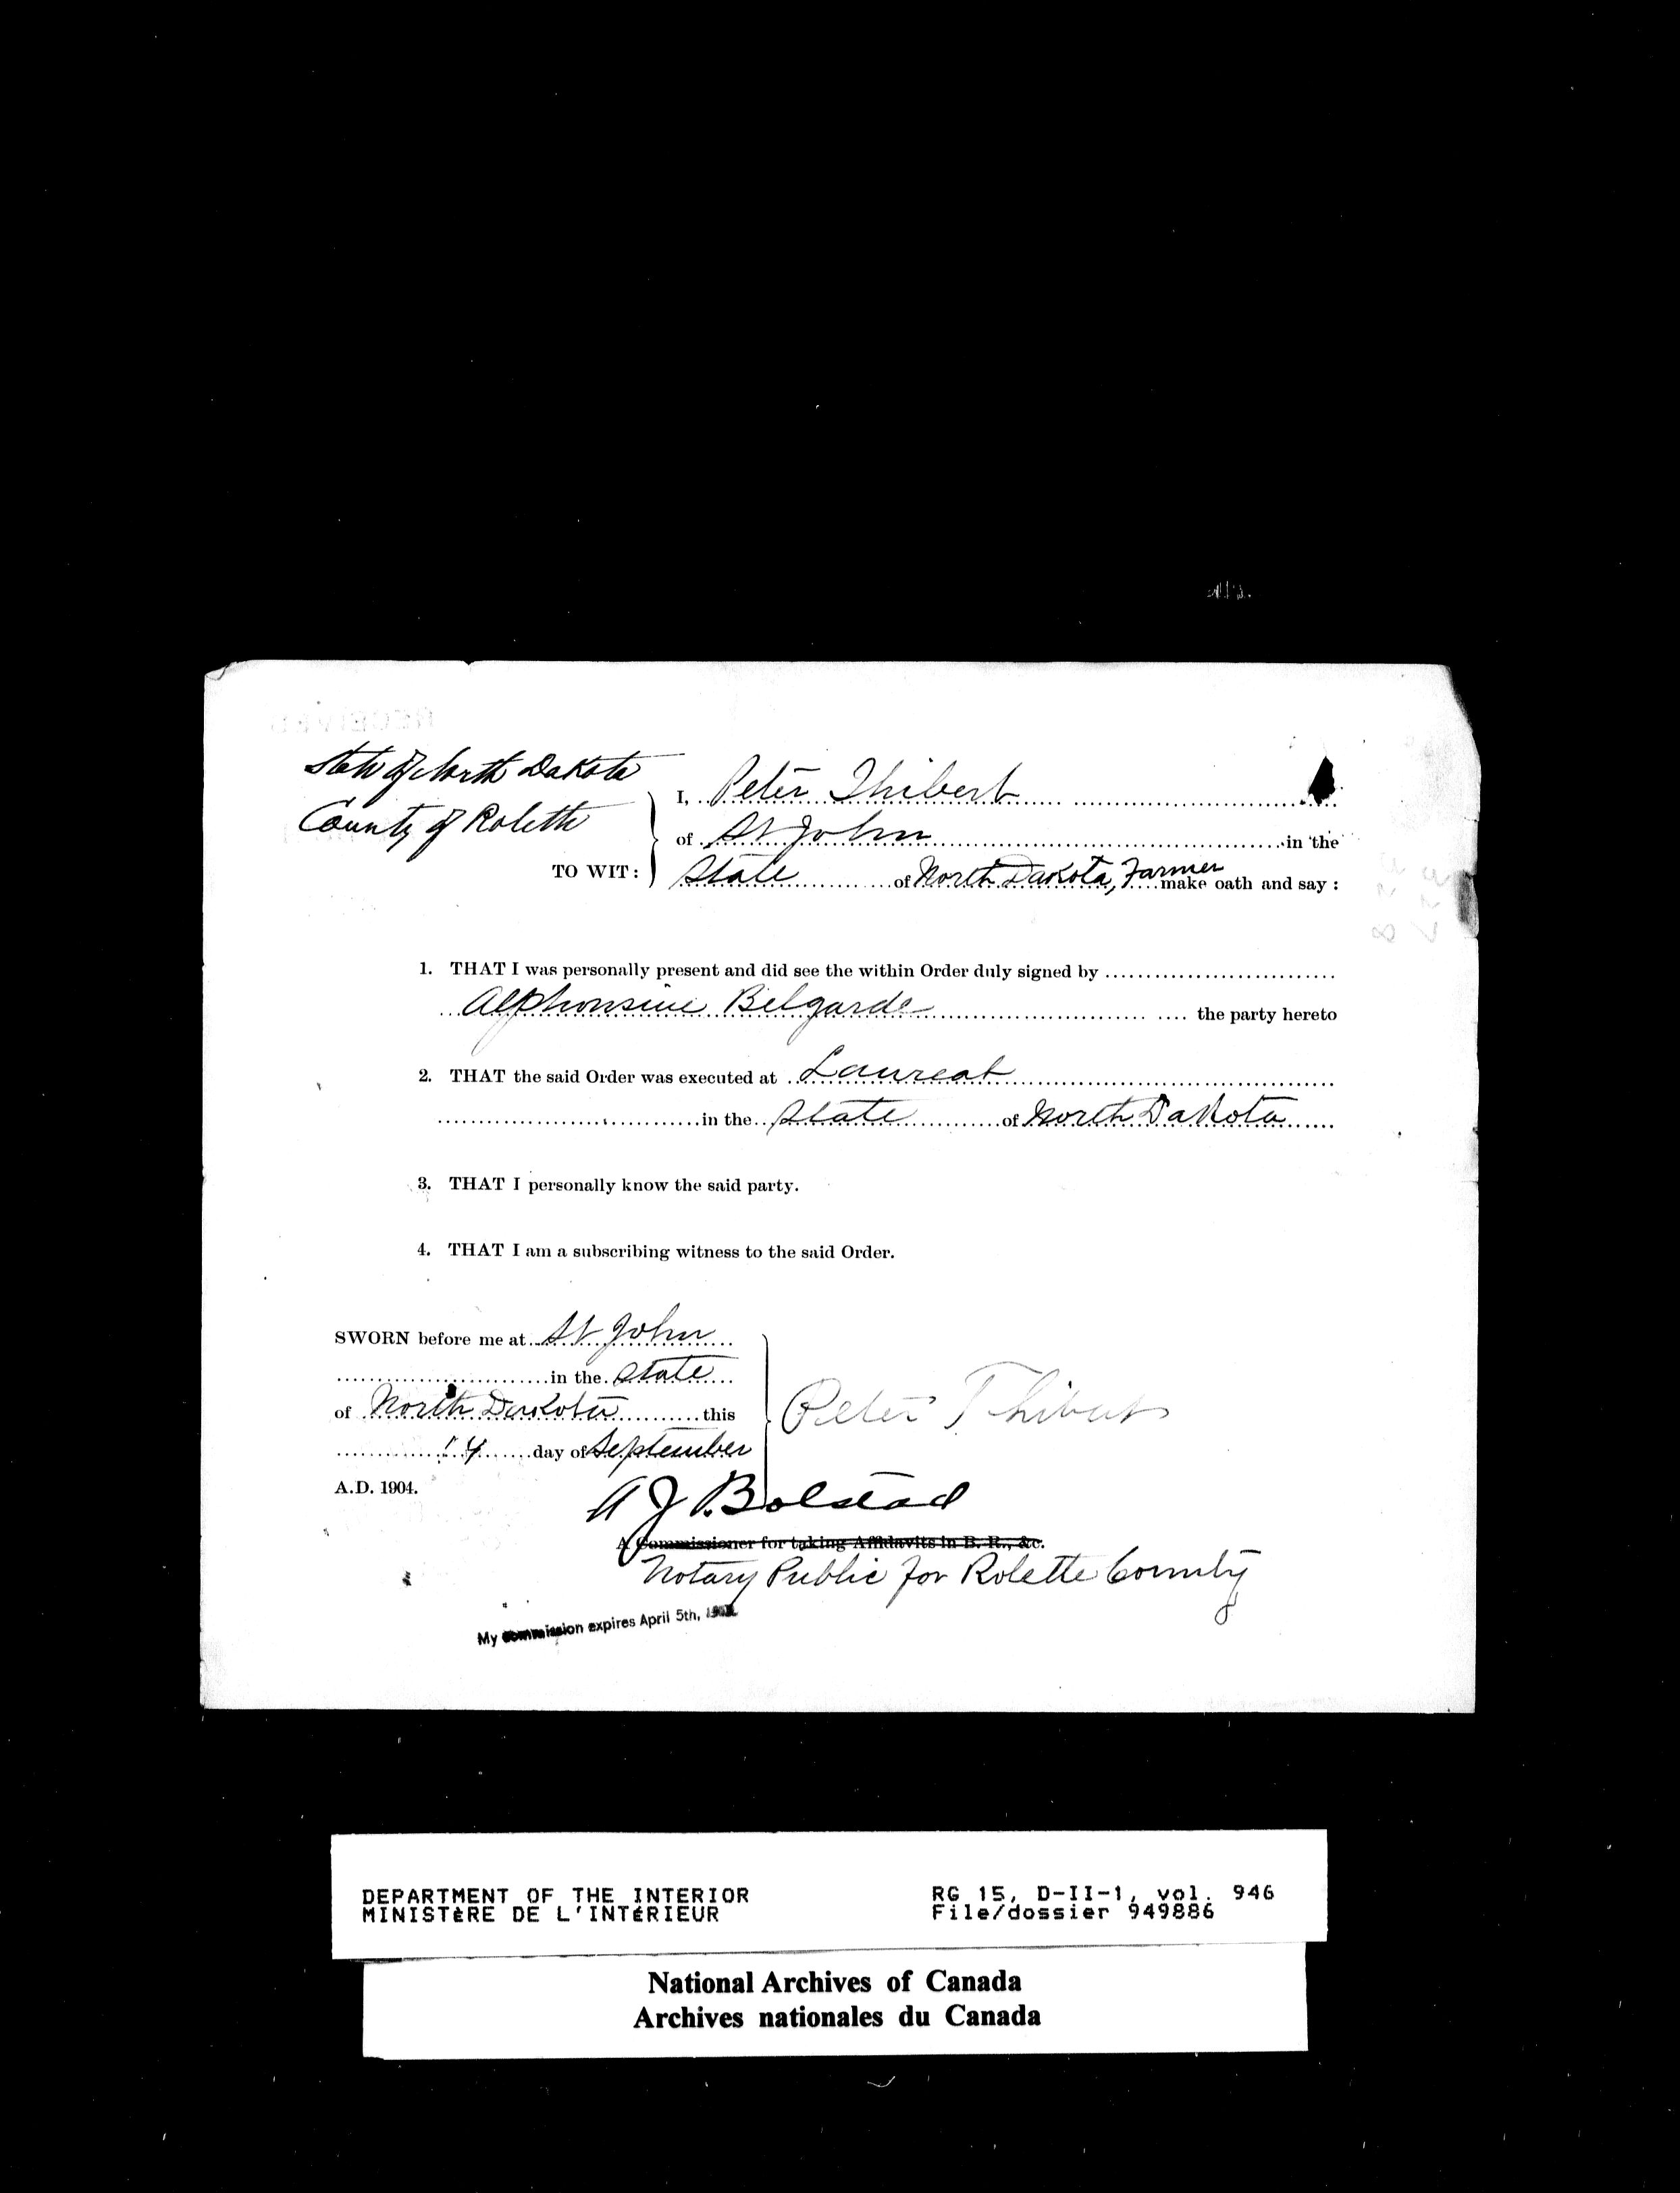 State of North Dakota
County of Rolette
TO WIT:
I, Peter Thibert
of St John in the
State of North Dakota, Farmer make oath and say :
1. THAT I was personally present and did see the within Order duly signed by
Alphonsine Belgarde the party hereto
2. THAT the said Order was executed at Laureat
in the State of North Dakota
3. THAT I personally know the said party.
4. THAT I am a subscribing witness to the said Order.
SWORN before me at St John
in the State
of North Dakota this
14 day of September
A.D. 1904.
Peter Thibert
A J Bolstad
A Commissioner for taking Affidavits in B. R., &c.
Notary Public for Rolette County
My Commission expires April 5th,
DEPARTMENT OF THE INTERIOR
MINISTÈRE DE L'INTÉRIEUR
RG 15, D-II-1, vol. 946
File/dossier 949886
National Archives of Canada
Archives nationales du Canada